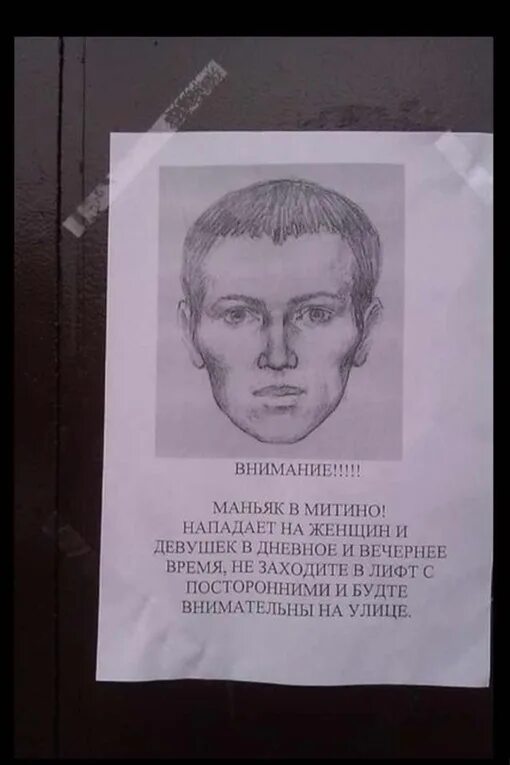 ВНИМАНИЕ!!!!!
МАНЬЯК В МИТИНО!
НАПАДАЕТ НА ЖЕНЩИН И
ДЕВУШЕК В ДНЕВНОЕ И ВЕЧЕРНЕЕ
ВРЕМЯ, НЕ ЗАХОДИТЕ В ЛИФТ С
ПОСТОРОННИМИ И БУДТЕ
ВНИМАТЕЛЬНЫ НА УЛИЦЕ.